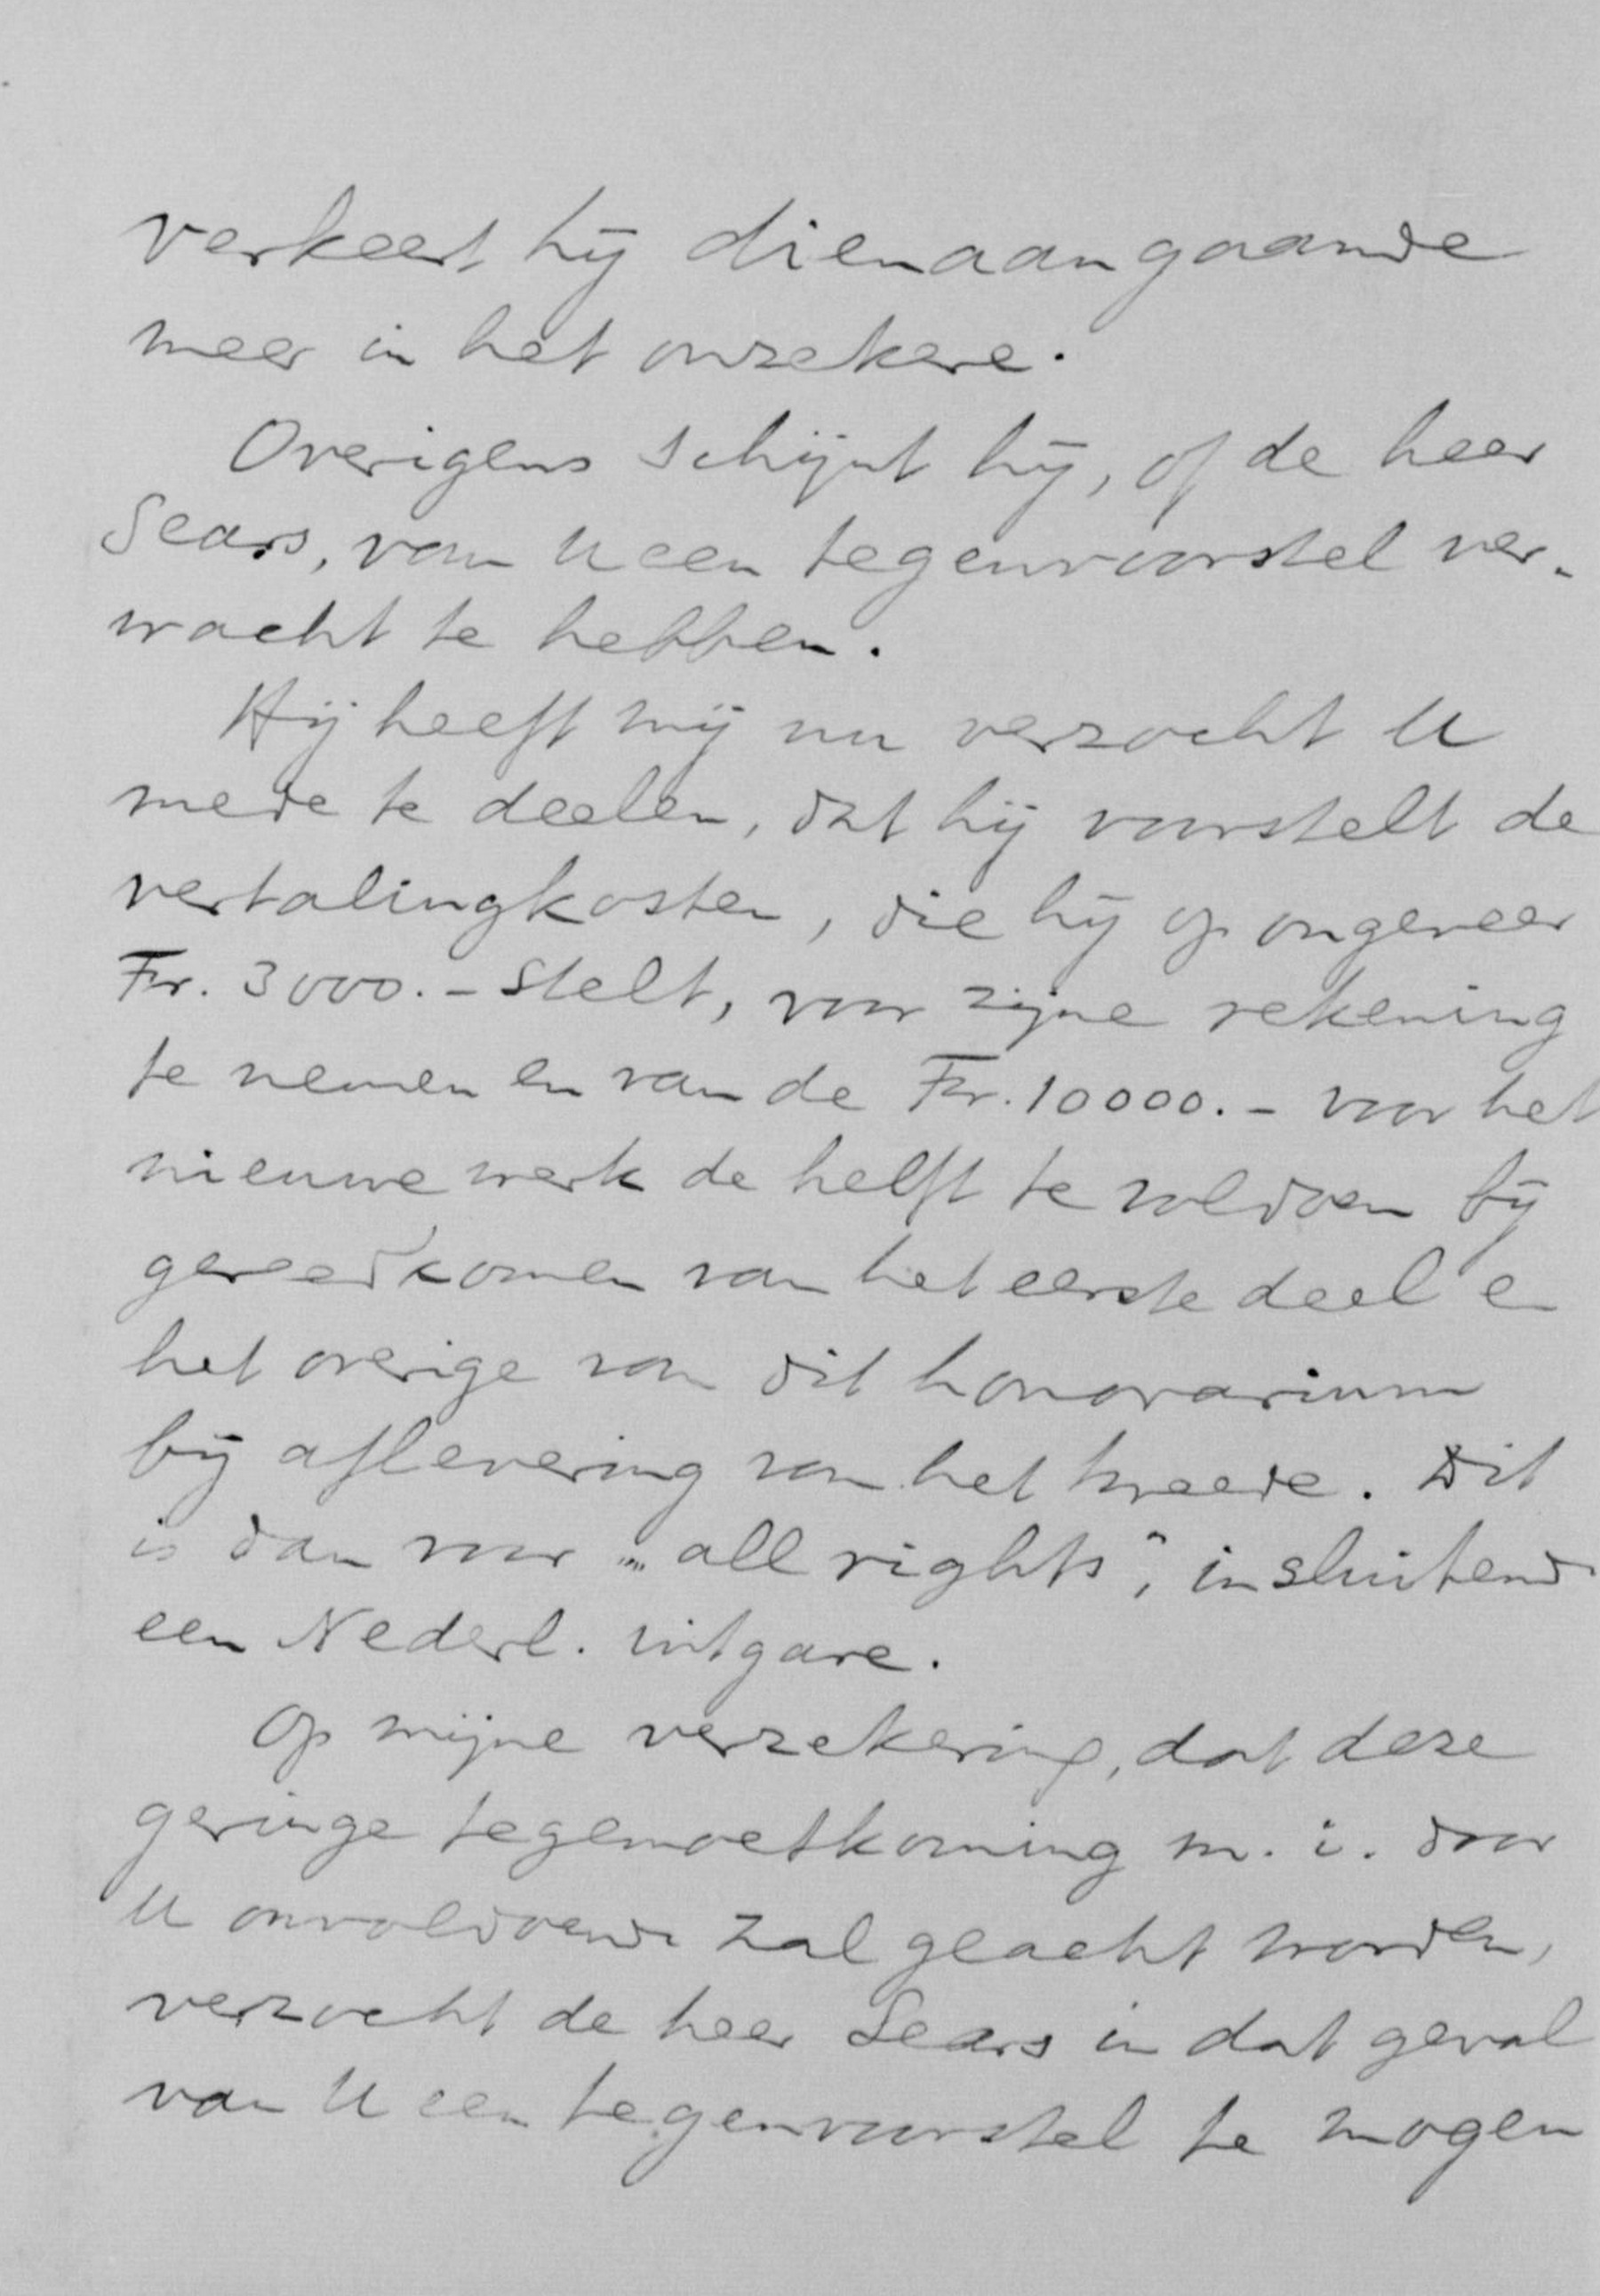 verkeert hij dienaangaande
meer in het onzekere.
Overigens schijnt hij, of de heer
Sears, van U een tegenvoorstel ver-
wacht te hebben.
Hij heeft mij nu verzocht U
mede te deelen, dat hij voorstelt de
vertalingkosten, die hij op ongeveer
Fr. 3000.- stelt, voor zijne rekening
te nemen en van de Fr. 10000.- voor het
nieuwe werk de helft te voldoen bij
gereedkomen van het eerste deel en
het overige van dit honorarium
bij aflevering van het tweede. Dit
is dan voor „all rights", insluitend
een Nederl. uitgave.
Op mijne verzekering, dat deze
geringe tegemoetkoming m. i. door
U onvoldoende zal geacht worden,
verzocht de heer Sears in dat geval
van U een tegenvoorstel te mogen